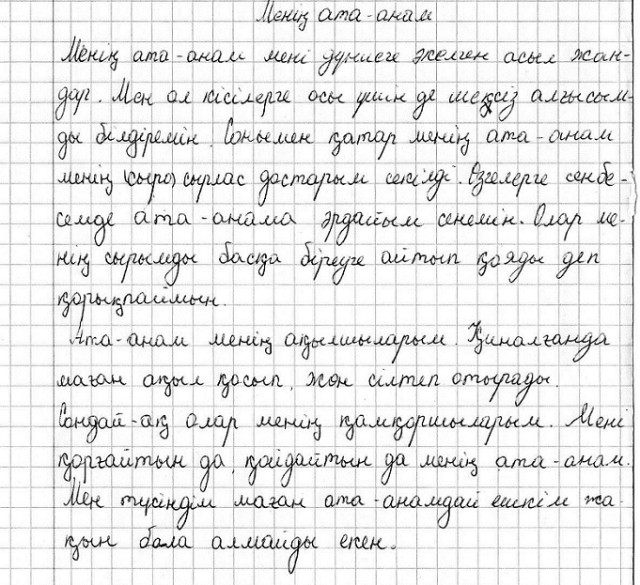 Менің ата-анам
Менің ата-анам мені дүниеге әкелген асыл жан-
дар. Мен ол кісілерге осы үшін де шексіз алғысым-
ды білдіремін. Сонымен қатар менің ата-анам
менің (сыро) сырлас достарым секілді. Өзгелерге сенбе-
семде ата-анама әрдайым сенемін. Олар ме-
нің сырымды басқа біреуге айтып қояды деп
қорықпаймын.
Ата-анам менің ақылшыларым. Қиналғанда
маған ақыл қосып, жөн сілтеп отырады.
Сондай-ақ олар менің қамқоршыларым. Мені
қорғайтын да, қолдайтын да менің ата-анам.
Мен түсіндім маған ата-анамдай ешкім жа-
қын бола алмайды екен.